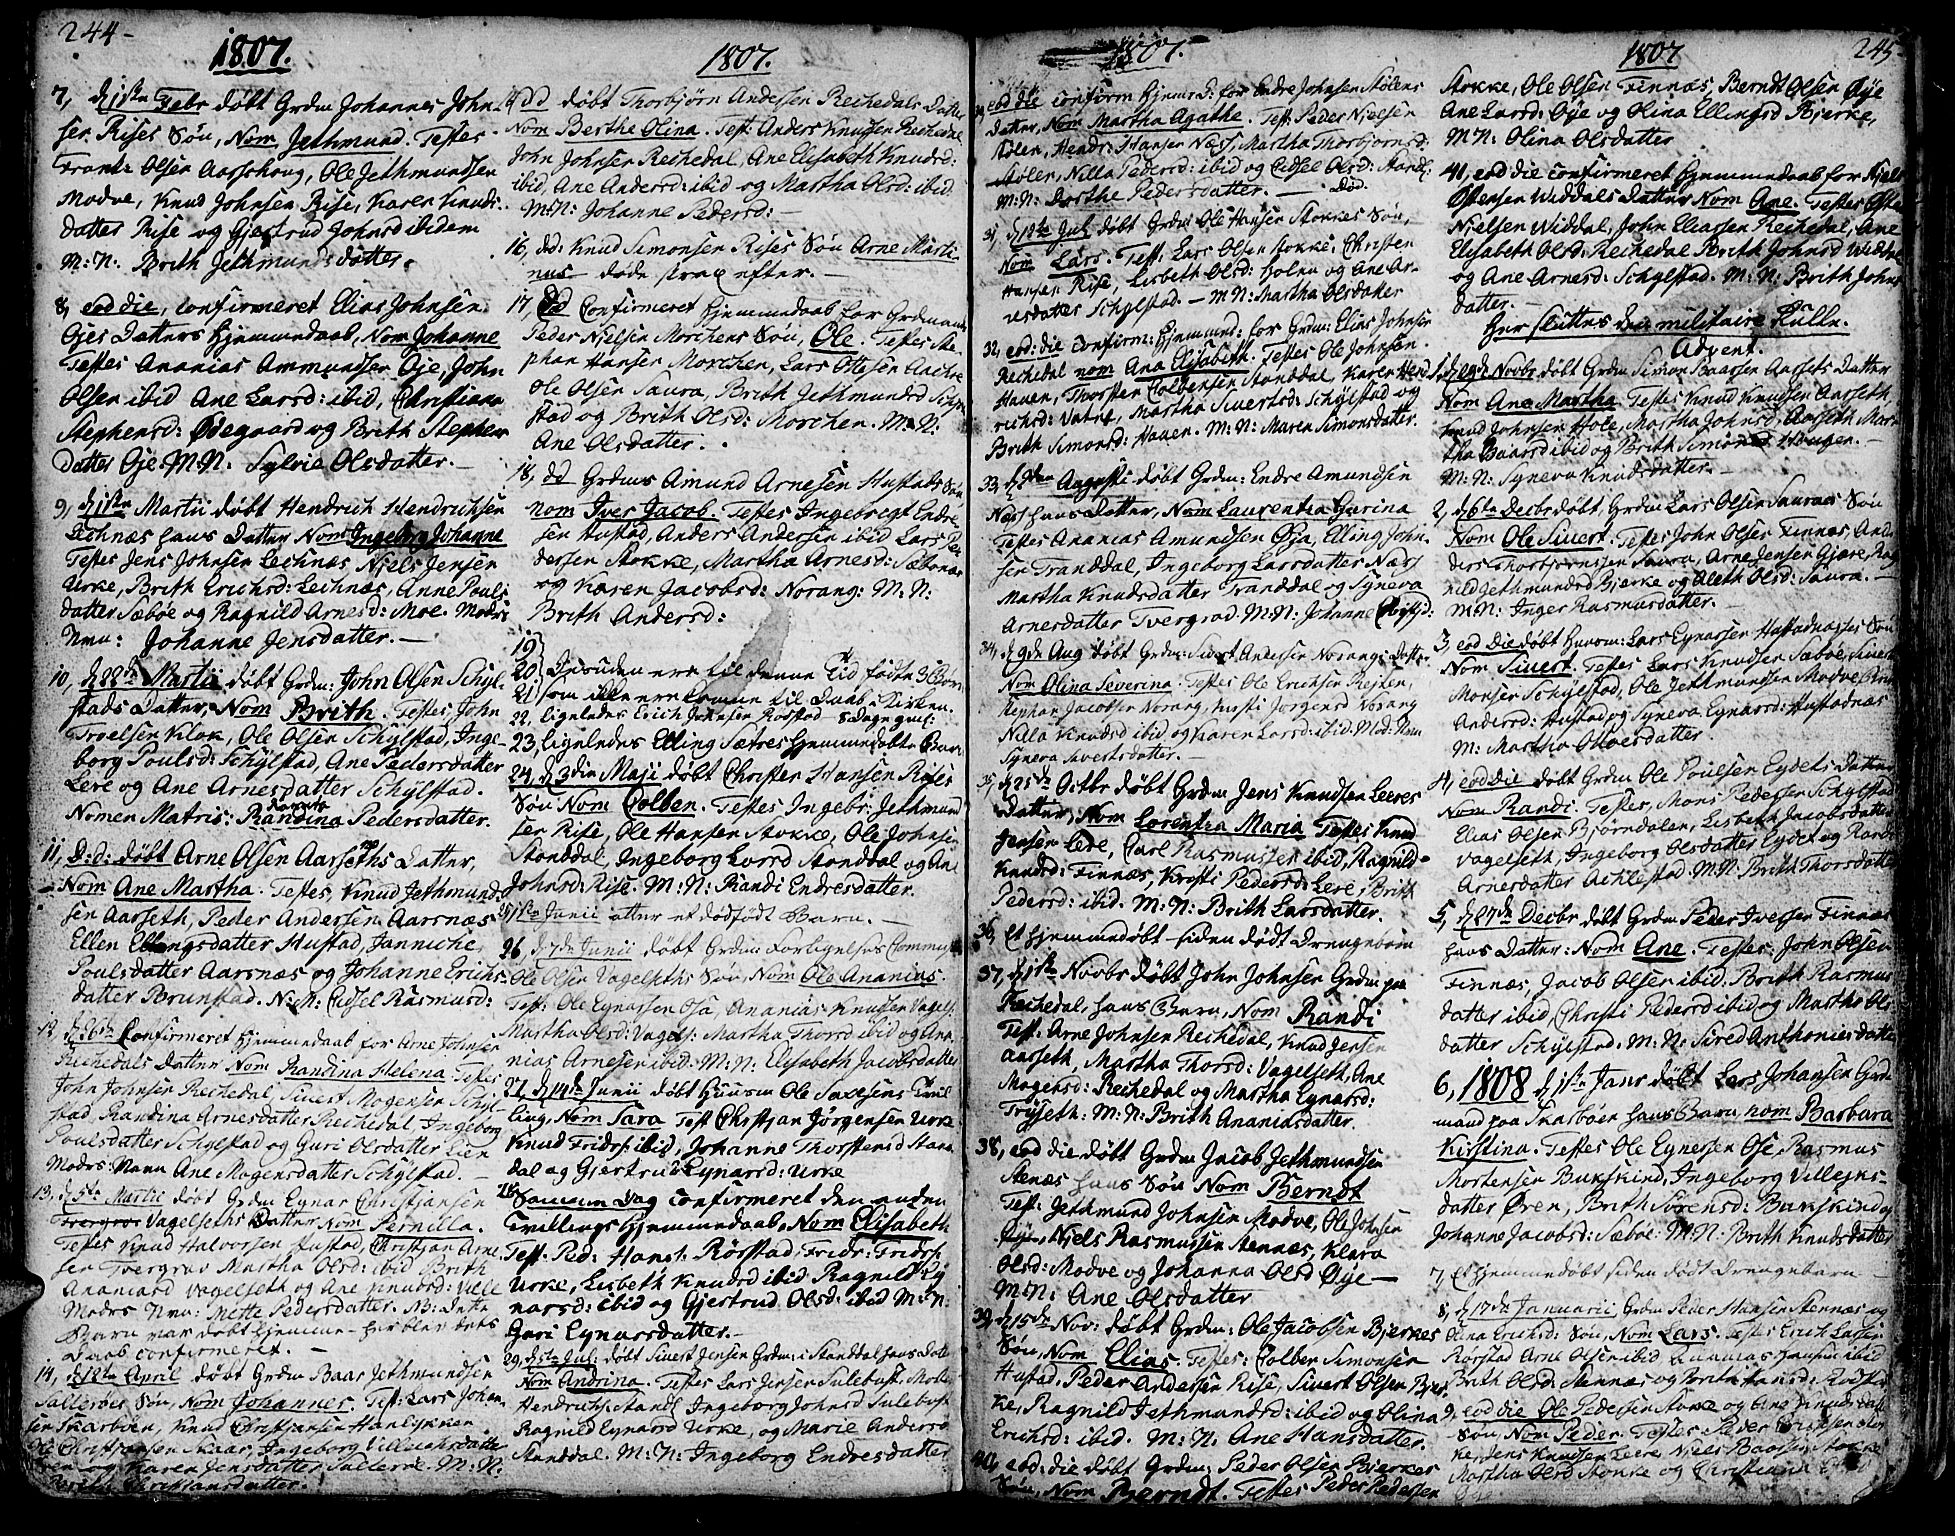 244-
1807.
7, d 1ste Febr døbt Grdm Johannes John
sen Rises Søn, Nom Jethmund. Testes
Olsen Aarsehoug, Ole Jethmundsen
Modve, Knud Johnsen Rise, Karen Knuds
datter Rise og Gjertrud Johnsd ibidem
M: N: Brith Jethmundsdatter.
8, eod die, confirmeret Elias Johnsen
Øjes Datters hjemmedaab, Nom Johanne
Testes Ananias Ammundsen Øje, John
Olsen ibid Ane Larsd: ibid, Christiane
Stephensd: Ødegaard og Brith Stephen
datter Øje. M: N: Sylvie Olsdatter.
9, d 1ste Martii døbt Hendrich Hendrichsen
Lechnæs hans Datter Nom Ingeborg Johanne
Testes Jens Johnsen Lechnæs Njels Jensen
Urke, Brith Erichsd: Lechnæs, Anne Pouls
datter Sæbøe og Ragnild Arnesd: Moe. Modrs
Nmu: Johanne Jensdatter.
10, d 22de Martii døbt Grdm: John Olsen Schyl
stads Datter, Nom Brith. Testes, John
Troelsen Klok, Ole Olsen Schylstad, Inge-
borg Poulsd: Schylstad, Ane Pedersdatter
Lere og Ane Arnesdatter Schylstad.
Nomen Matris: Randina Pedersdatter.
11, D:d: døbt Arne Olsen Aarseths Datter,
Nom Ane Martha. Testes, Knud Jethmund
sen Aarseth, Peder Andersen Aarsnæs
Ellen Ellingsdatter Hustad, Janniche
Poulsdatter Aarsnæs og Johanne Erichs-
datter Brunstad. N: M: Cidsel Rasmusd:
12, d 26de Confirmeret hjemmedaab for Arne Johnsen
Rechedals Datter Nom Randina Helena. Testes
John Johnsen Rechedal, Siuert Mogensen Schyl
stad, Randina Arnesdatter Rechedal, Ingeborg
Poulsdatter Schylstad og Guri Olsdatter Lien
Modrs: Navn Ane Mogensdatter Schylstad.
13, d 5te Martii døbt Grdm Eynar Christjansen
Vagelseths Datter Nom Pernilla.
Testes Knud Halvorsen Hustad, Christjan Arne
sen Tvergrov Martha Olsd: ibid Brith
Ananiasd Vagelseth og Ane Knudsd: Velle
Modrs Nmu: Mette Pedersdatter. NB: Dette
Barn var døbt hjemme her blev dets
Daab confirmeret.
14, d 12te April døbt Grdm Baar Jethmundsen
Søn, Nom Johannes. Test: Lars Johan
sen Skarbøen, Knud Christjansen
Ole Christjansen Skaar, Ingeborg
og Karen Jensdatter M: N:
Christiansdatter.
1807.
døbt Thorbjørn Andersen Rechedals Datter
Nom Berthe Olina. Test: Anders Knudsen Rechedal
John Johnsen Rechedal, Ane Elisabeth Knudsd:
ibid, Ane Andersd: ibid og Martha Olsd: ibid.
M: N: Johanne Pedersd:
16, dd: Knud Simonsen Rises Søn Arne Marti
nus døde strax efter.
17, dd Confirmeret hjemmedaab for Grdmands
Peder Njelsen Morchens Søn, Ole. Testes Ste
phan Hansen Morchen, Lars Ottesen
Ole Olsen Saura, Brith Jethmundsd Schyl
stad og Brith Olsd: Morchen. M: N:
Ane Olsdatter.
18, dd Grdms Amund Arnesen Hustads Søn
nom Iver Jacob. Testes Ingebregt Endre
sen Hustad, Anders Andersen ibid Lars Pe
dersen Stokke, Martha Arnesd: Sæbønes
og Karen Jacobsd: Norang: M: N:
Brith Andersd:
19
20, Desuden ere til denne Tid fødte 3 Børn
21, som ikke ere komne til Daab i Kirken.
22, Ligeledes Erich Johnsen Rørstad 8 Dage gml:
23, Ligeledes Elling Sætres hjemmedøbte Barn
24, d 3die Maji døbt Christen Hansen Rises
Søn Nom Colben. Testes Ingebr: Jethmund
sen Rise, Ole Hansen Stokke, Ole Johnsen
Standdal, Ingeborg Larsd Standdal og Ane
Johnsd: Rise. M: N: Randi Endresdatter.
25, 1ste Junii atter et dødfødt Barn.
26, d 7de Junii døbt Grdm Forligelses Commiss
Ole Olsen Vagelseths Søn, Nom Ole Ananias.
Test: Ole Eynarsen Osa, Ananias Knudsen Vagels:
Martha Olsd: Vagels: Martha Thorsd ibid og Ana
nias Arnesen ibid: M: N: Elisabeth Jacobsdatter
27, d 14de Junii døbt Huusm Ole Saxesens Tvil
ling, Nom Sara Test Christjan Jørgensen Urke
Knud Fridrs: ibid, Johanne Thorstensd Stand
dal og Gjertrud Eynarsd: Urke
28, Samme Dag confirmeret den anden
Tvillings hjemmedaab, Nom Elisabeth
Test: Ped: Hans: Rørstad: Fridr: Fridrs:
Urke, Lisbeth Knudsd ibid Ragnild Ey
narsd: ibid og Gjertrud Olsd: ibid M: N:
Guri Eynarsdatter.
29, d 5te Jul: døbt Siuert Jensen Grdm: i Standdal hans Datter
Nom Andrina. Testes Lars Jensen Sulebust,
Hendrichs: Ingeborg Johnsd Sulebust
Ragnild Eynarsd Urke, og Marie Andersd
Standdal. M: N: Ingeborg Endresdatter
1807.
eod die confirm hjemmed: for Endre Johnsen Stølens
Datter, Nom Martha Agathe. Test: Peder Njelsen
Adlen, Hendr: Hansen Næss, Martha Thorbjørnsd:
Adlen, Nilla Pedersd: ibid og Cidsel Olsd:
M: N: Dorthe Pedersdatter.
31, d 12te Julj døbt Grdm Ole Hansen Stokkes Søn,
Nom Lars. Test: Lars Olsen Stokke, Christen
Hansen Rise, Lisbeth Olsd: Holen og Ane Ar-
nesdatter Schylstad. M: N: Martha Olsdatter
32, eod: die confirm: hjemmed: for Grdm: Elias Johnsen
Rechedal nom Ana Elisabeth. Testes Ole Johnsen
Hauen, Thorsten Colbensen Standdal, Karen Hend
richsd: Vatne, Martha Siuertsd: Schylstad og
Brith Simonsd: Hauen. M: N: Maren Simonsdatter.
33, d Augusti døbt Grdm: Endre Amundsen
Næss hans Datter, Nom Laurentza Gurina
Testes Ananias Amundsen Øja, Elling John-
sen Tranddal, Ingeborg Larsdatter Næss
Martha Knudsdatter Tranddal og Syneva
Arnesdatter Tvergrov M: N: Johanne
34, d 9de Aug døbt Grdm: Siuert Andersen Norangs Datter
Nom Olina Severina. Testes Ole Erichsen Rejten,
Stephan Jacobsen Norang, Jørgensd Norang
Nilla Knudsd ibid og Karen Larsd: ibid: Mod: Nvn
Syneva Siuertsdatter.
35, d 25de Octbr døbt Grdm Jens Knudsen Leeres
Datter, Nom Lorentza Maria Testes Knud
Jensen Lede, Carl Rasmussen ibid, Ragnild
Knudsd: Finnæs, Kristi Pedersd: Lere, Brith
Pedersd: ibid. M: N: Brith Larsdatter.
36, Et hjemmedøbt siden dødt Drengebarn
37, d 1ste Novbr døbt John Johnsen Grdm paa
Rechedal, hans Barn, Nom Randi
Test: Arne Johnsen Rechedal, Knud Jensen
Aarseth, Martha Thorsd: Vagelseth, Ane
Mogensd: Rechedal og Martha Eynarsd:
Tryseth: M: N: Brith Ananiasdatter.
38, eod die døbt Grdm Jacob Jethmundsen
Stenæs hans Søn Nom Berndt
Test: Jethmund Johnsen Modve, Ole Johnsen
Øje, Njels Rasmussen Stennæs, Klara
Olsd: Modve og Johanna Olsd Øye
M: N: Ane Olsdatter
39, d 15de Nov: døbt Grdm: Ole Jacobsen Bjerkes
Søn, Nom Elias. Testes: Colben Simonsen
Hustad, Peder Andersen Rise, Siuert Olsen Bjer
ke, Ragnild Jethmundsd: ibid og Olina
Erichsd: ibid. M: N: Ane Hansdatter.
40, eod: die døbt Grdm: Peder Olsen Bjerkes
Søn, Nom Berndt. Testes Peder Pedersen
1807
245
Stokke, Ole Olsen Finnæs, Berndt Olsen Øje
Ane Larsd: Øye og Olina Ellingsd Bjerke,
M: N: Olina Olsdatter
41, eod die confirmeret hjemmedaab for Njels
Østensen Widdals Datter Nom Ane. Testes Østen
Njelsen Widdal, John Eliassen Rechedal, Ane
Elisabeth Olsd: Rechedal Brith Johnsd Widdal
og Ane Arnesd: Schylstad. M: N: Brith Johns
datter.
Her sluttes den militaire Rulle.
Advent.
1, d 29de Novbr døbt Grdm Simon Baarsen Aarsets Datter
Nom Ane Martha Testes Knud Knudsen Aarseth
Knud Johnsen Hole, Martha Johnsd: Aarseth Mar
tha Baarsd ibid og Brith Simonsd Hougen.
M: N: Syneva Knudsdatter.
2, d 6te Decbr døbt, Grdm Lars Olsen Sauras Søn
Nom Ole Siuert. Testes John Olsen Finnæs, An
ders Thorbjørnsen Saura, Arne Jensen Gjære, Rag
nild Jethmundsd Bjerke og Aleth Olsd: Saura.
M: N: Inger Rasmusdatter.
3, eod Die døbt Huusm: Lars Eynarsen Hustadnæsses Søn
Nom Siuert. Testes Lars Knudsen Sæbøe, Siuert
Monsen Schylstad, Ole Jethmundsen Modve,
Andersd: Hustad og Syneva Eynarsd: Hustadnæs
M: Martha Olsdatter.
4, eod Die døbt Grdm Ole Poulsen Eydets Datter
Nom Randi. Testes, Mons Pedersen Schylstad
Elias Olsen Bjørndalen, Lisbeth Jacobsdatter
Vagelseth, Ingeborg Olsdatter Eydet og
Arnesdatter Achlestad. M: N: Brith Thorsdatter
5, d 27de Decbr døbt Grdm Peder Iversen Finnæs
hans Datter: Nom Ane. Testes John Olsen
Finnæs, Jacob Olsen ibid, Brith Rasmus
datter ibid, Christi Pedersd ibid og Martha Ols
datter Schylstad. M: N: Sired Anthonisdatter
6, 1808 d 1ste Janr døbt Lars Johansen Grd
mand paa Skarbøen hans Barn, nom Barbara
Kirstina. Testes Ole Eynersen Ose, Rasmus
Mortensen Bukskind, Ingeborg Villejks-
datter Øren, Brith Sørensd: Bukskind og
Johanne Jacobsd: Sæbøe: M: N: Brith Knudsdatter
7, Et hjemmedøbt siden dødt Drengebarn
8, d 17de Januarii, Grdm Peder Hansen Stennæs og
Olina Erichsd: Søn, Nom Lars. Testes Erich Larsen
Rørstad Arne Olsen ibid, Ananias Hansen ibid
Brith Olsd Stennæs og Hansd: Rørstad
9, eod die Ole Pedersen Stokke og Ane Knudsdatter
Søn Nom Peder. Testes Peder Christensen Stok
ke, Jens Knudsen Leere, Njels Baarsen Stokke
Martha Olsd Stokke og Christiana